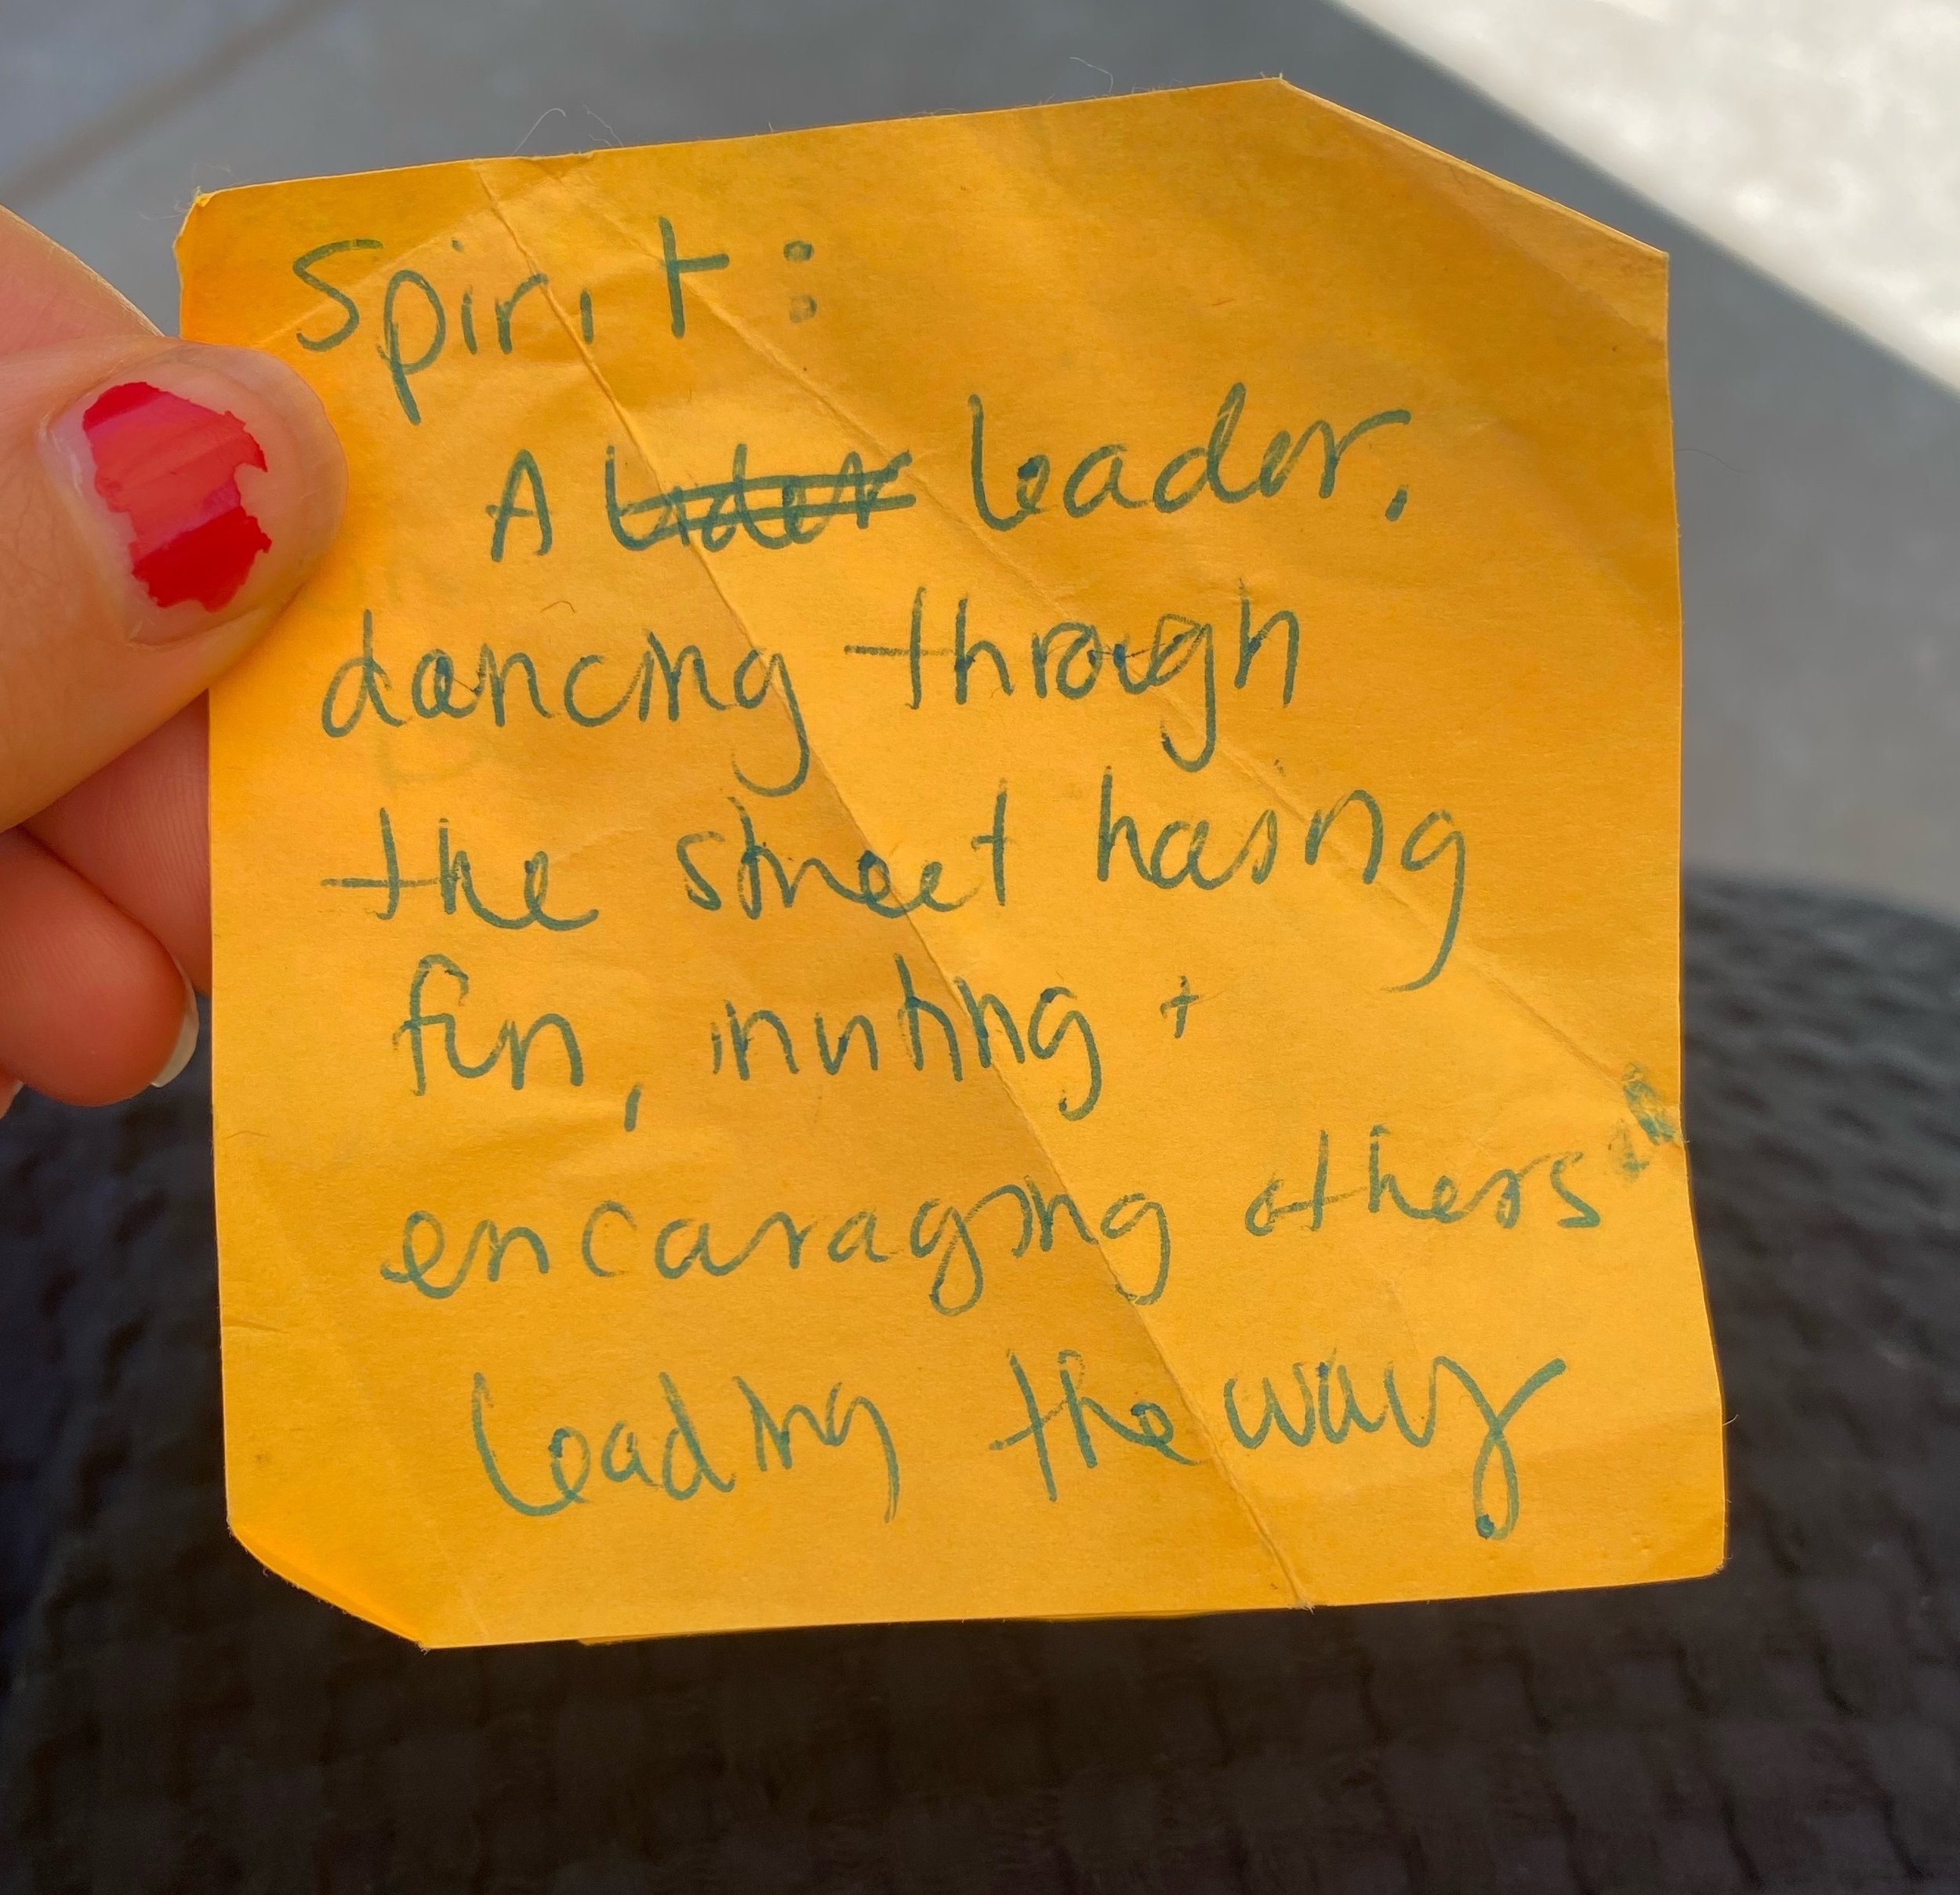 Spirit:
A leader,
dancing through
the street having
fun, inviting +
encouraging others
leading the way